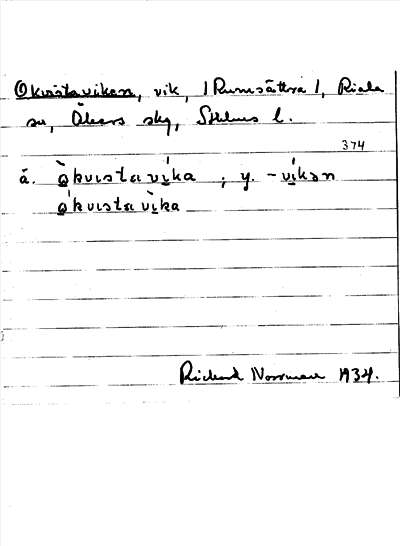 Okvistaviken, vik, /Rumsättra/, Riala
sn, Åkers skg, Sthlms l.
374
ä. òkvısta víka ; y. -víkən
ókvısta vìka
Richard Norrman 1934.